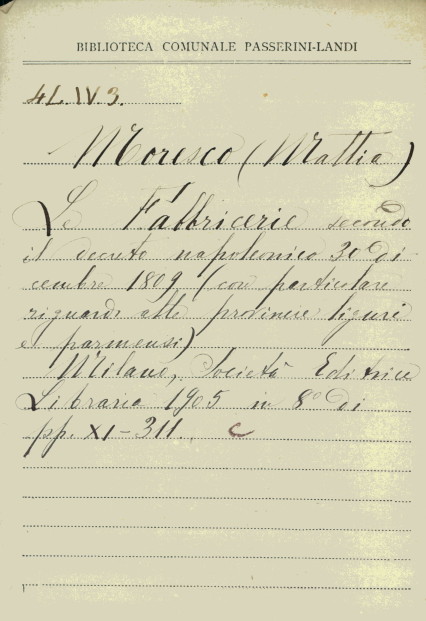 BIBLIOTECA COMUNALE PASSERINI-LANDI
4L.IV.3.
Moresco (Mattia)
Le Fabbricerie secondo
il decreto napoleonico 30 di
cembre 1809 (con particolare
riguardo alle provincie liguri
e parmensi)
Milano, Società Editrice
Libraria 1905 in 8° di
pp. XI-311. C